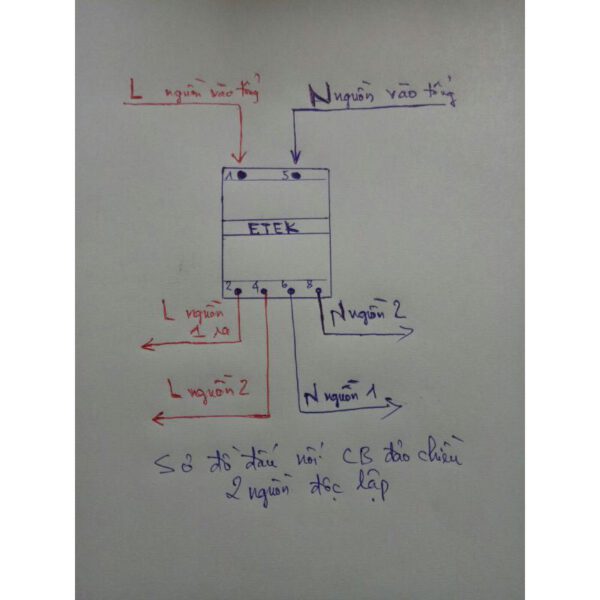 L nguồn vào tổng
N nguồn vào tổng
1 5
ETEK
2 4 6 8
L nguồn
1 ra
N nguồn 2
L nguồn 2
N nguồn 1
Sơ đồ đấu nối CB đảo chiều
2 nguồn độc lập